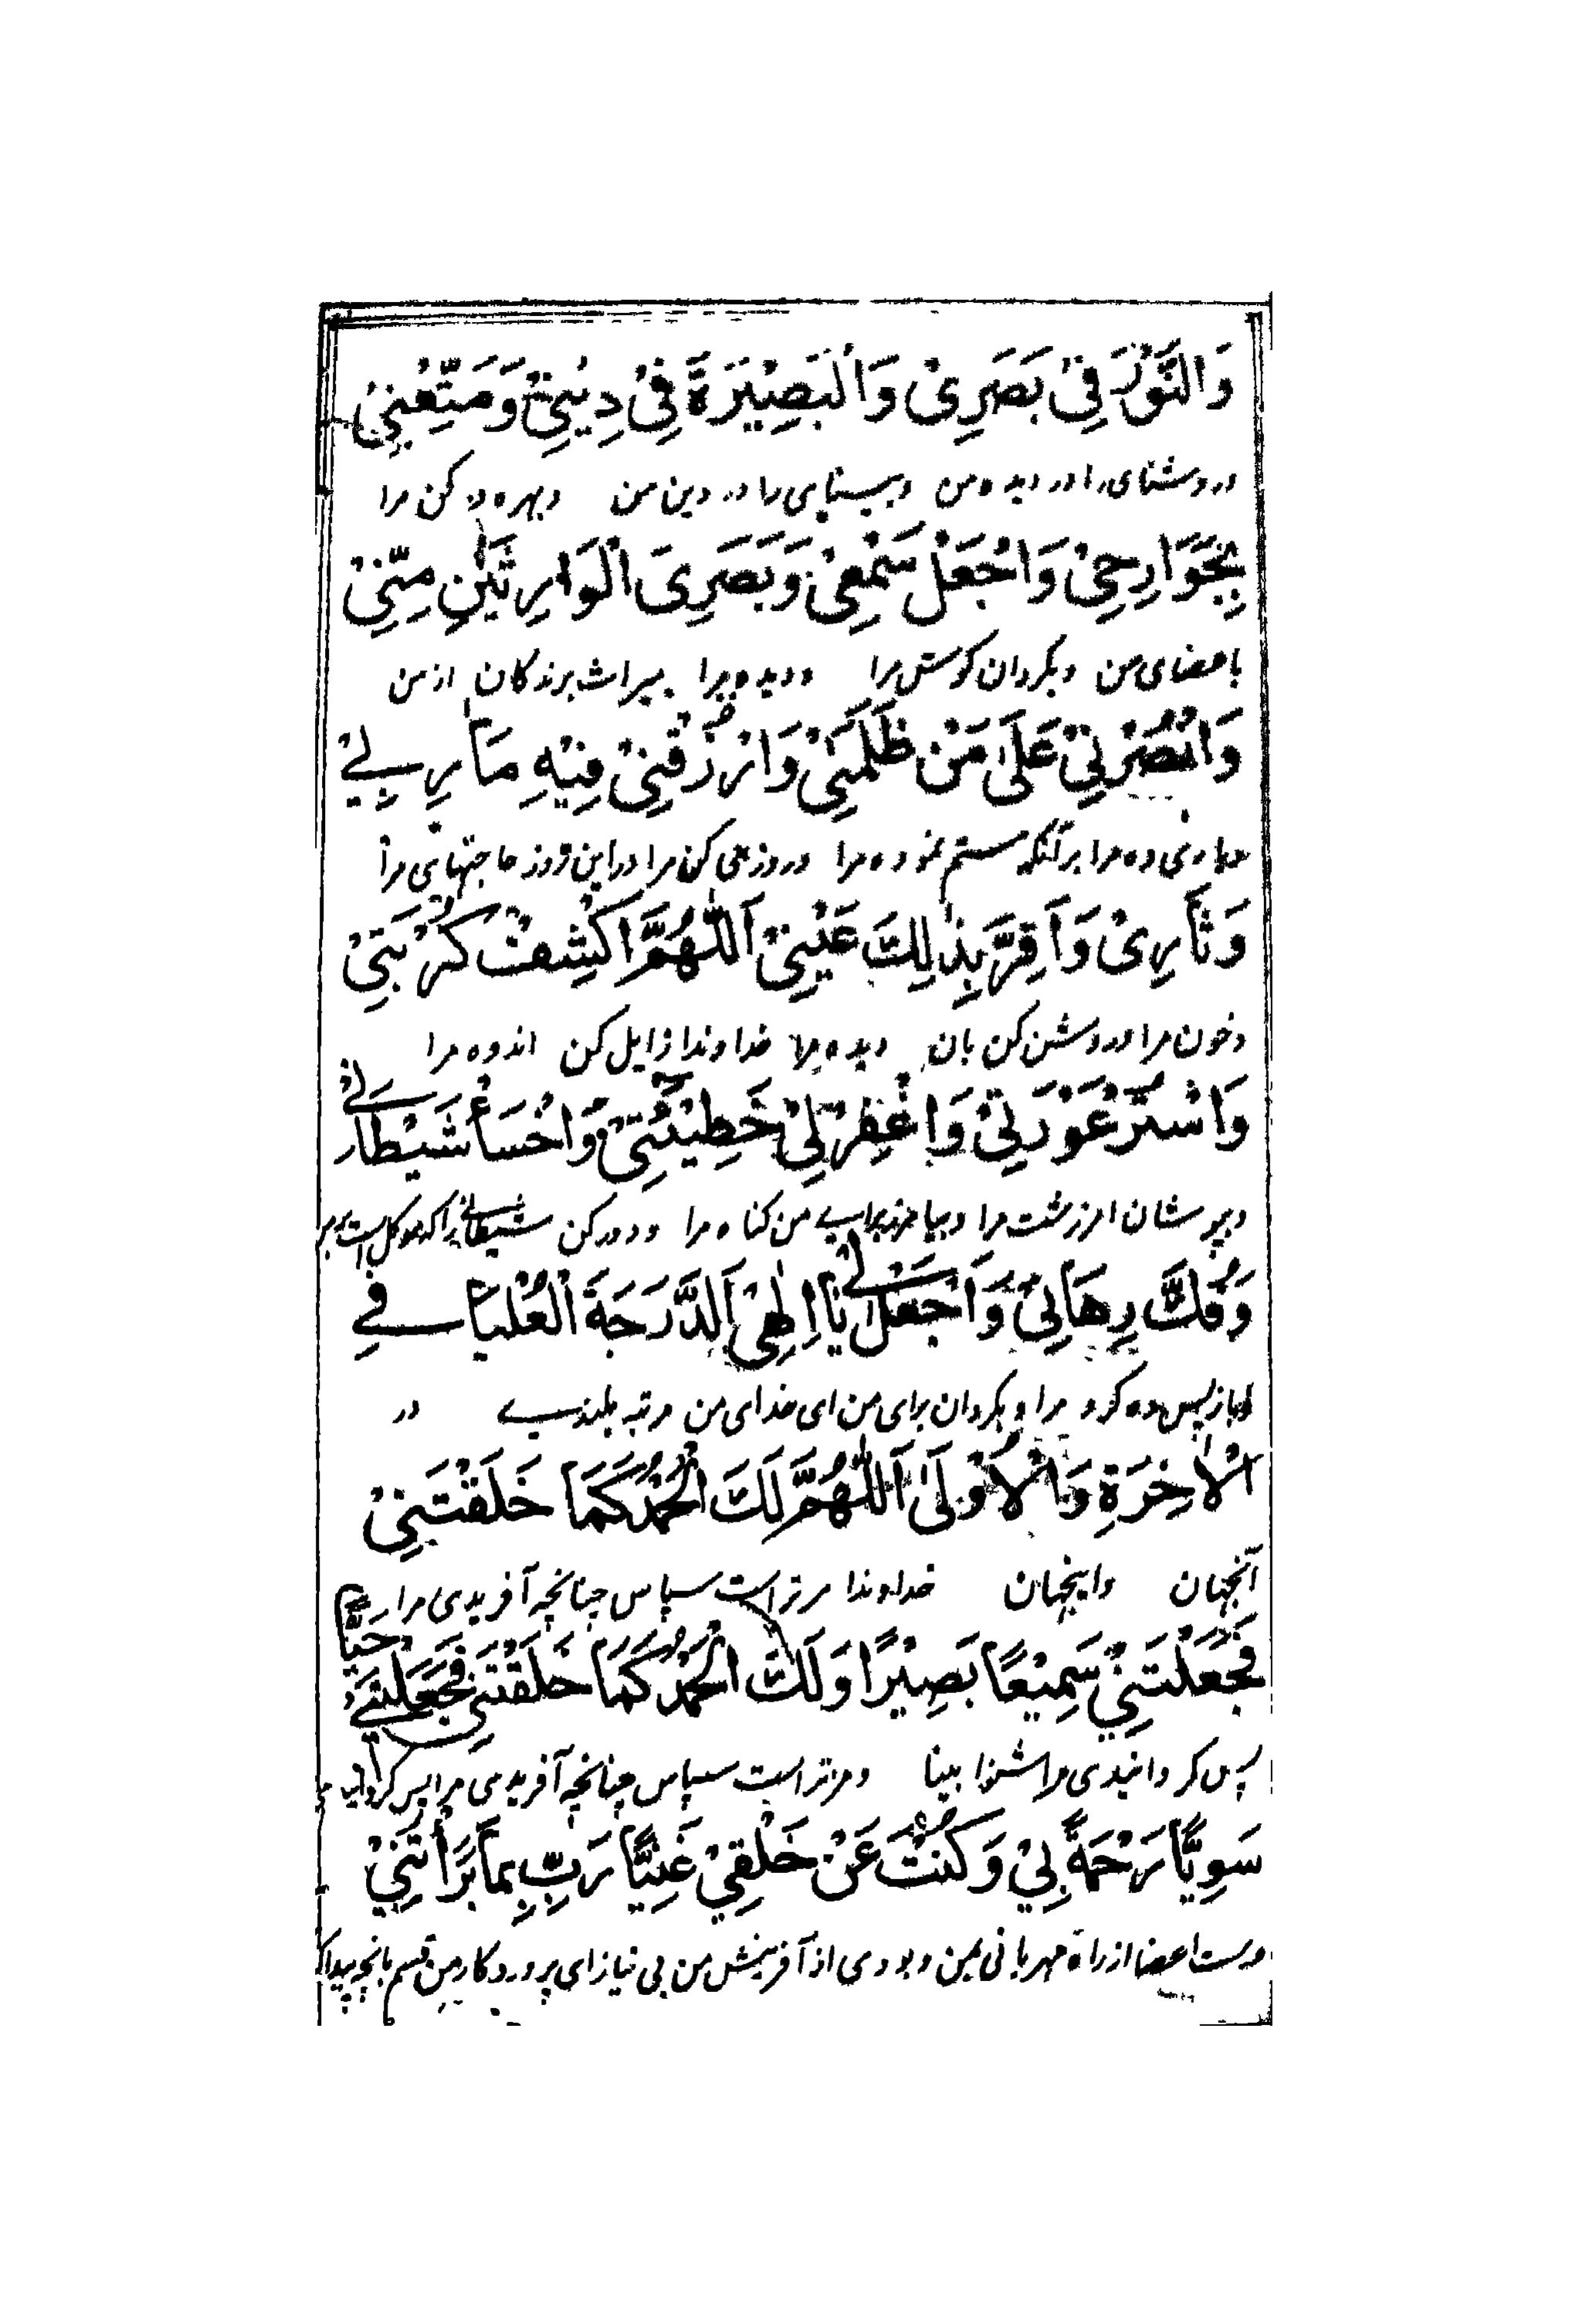 وَالنُّوْرَ فِیْ بَصَرِیْ وَالْبَصِیْرَةَ فِیْ دِیْنِیْ وَمَتِّعْنِیْ
وروشنای را در دیده من وبینای را در دین من وبهره‌ور کن مرا
بِجَوَارِحِیْ وَاجْعَلْ سَمْعِیْ وَبَصَرِیَ الْوَارِثَیْنِ مِنِّیْ
باعضای من وبکردان کوش مرا ودیده مرا میراث برندکان از من
وَانْصُرْنِیْ عَلَىٰ مَنْ ظَلَمَنِیْ وَارْزُقْنِیْ فِیْهِ مَاٰرِبِیْ
ویاری ده مرا بر آنکه ستم نموده مرا وروزی کن مرا دراین روز حاجتهای مرا
وَثَأْرِیْ وَاَقِرَّ بِذٰلِكَ عَیْنِیْ اَللّٰهُمَّ اكْشِفْ كُرْبَتِیْ
وخون مرا وروشن کن بان دیده مرا خداوندا زایل کن اندوه مرا
وَاسْتُرْ عَوْرَتِیْ وَاغْفِرْ لِیْ خَطِیْئَتِیْ وَاخْسَأْ شَیْطَانِیْ
وبپوشان امر زشت مرا وبیامرز برای من کناه مرا ودور کن شیطانی را که موکل است بر
وَفُكَّ رِهَانِیْ وَاجْعَلْ لِیْ یَا اِلٰهِیْ اَلدَّرَجَةَ الْعُلْیَا فِی
وباز پس ده کرو مرا وبکردان برای من ای خدای من مرتبه بلند در
الْاٰخِرَةِ وَالْاُوْلَىٰ اَللّٰهُمَّ لَكَ الْحَمْدُ كَمَا خَلَقْتَنِیْ
آنجهان واینجهان خداوندا مر تراست سپاس چنانچه آفریدی مرا
فَجَعَلْتَنِیْ سَمِیْعًا بَصِیْرًا وَلَكَ الْحَمْدُ كَمَا خَلَقْتَنِیْ فَجَعَلْتَنِیْ حَیًّا
پس کردانیدی مرا شنوا بینا ومر تراست سپاس چنانچه آفریدی مرا پس
سَوِیًّا رَحْمَةً بِیْ وَكُنْتَ عَنْ خَلْقِیْ غَنِیًّا رَبِّ بِمَا بَرَأْتَنِیْ
درست اعضا از راه مهربانی بمن وبودی از آفرینش من بی نیاز ای پروردکار من قسم بانچه